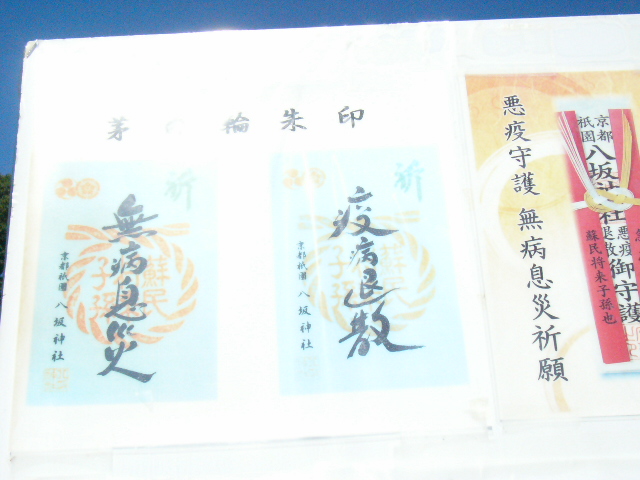 茅の輪朱印
祈
無病息災
蘇民
子孫
京都祇園 八坂神社
祈
疫病退散
蘇民
子孫
京都祇園 八坂神社
悪疫守護 無病息災祈願
京都
祇園
八坂神社
悪疫
退散
御守護
蘇民将来子孫也